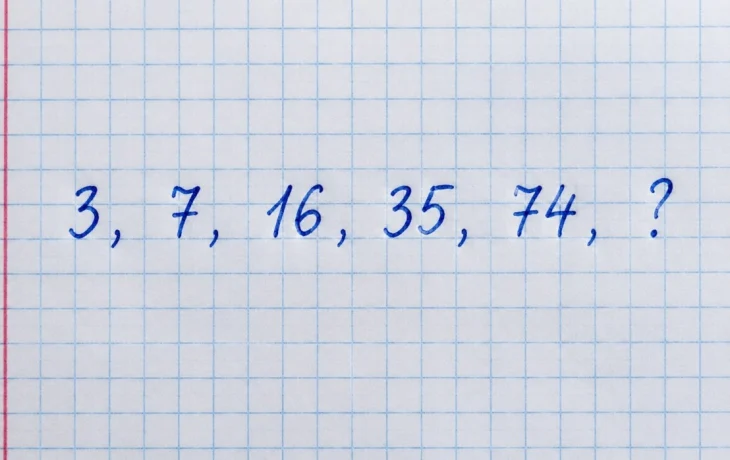 3, 7, 16, 35, 74, ?